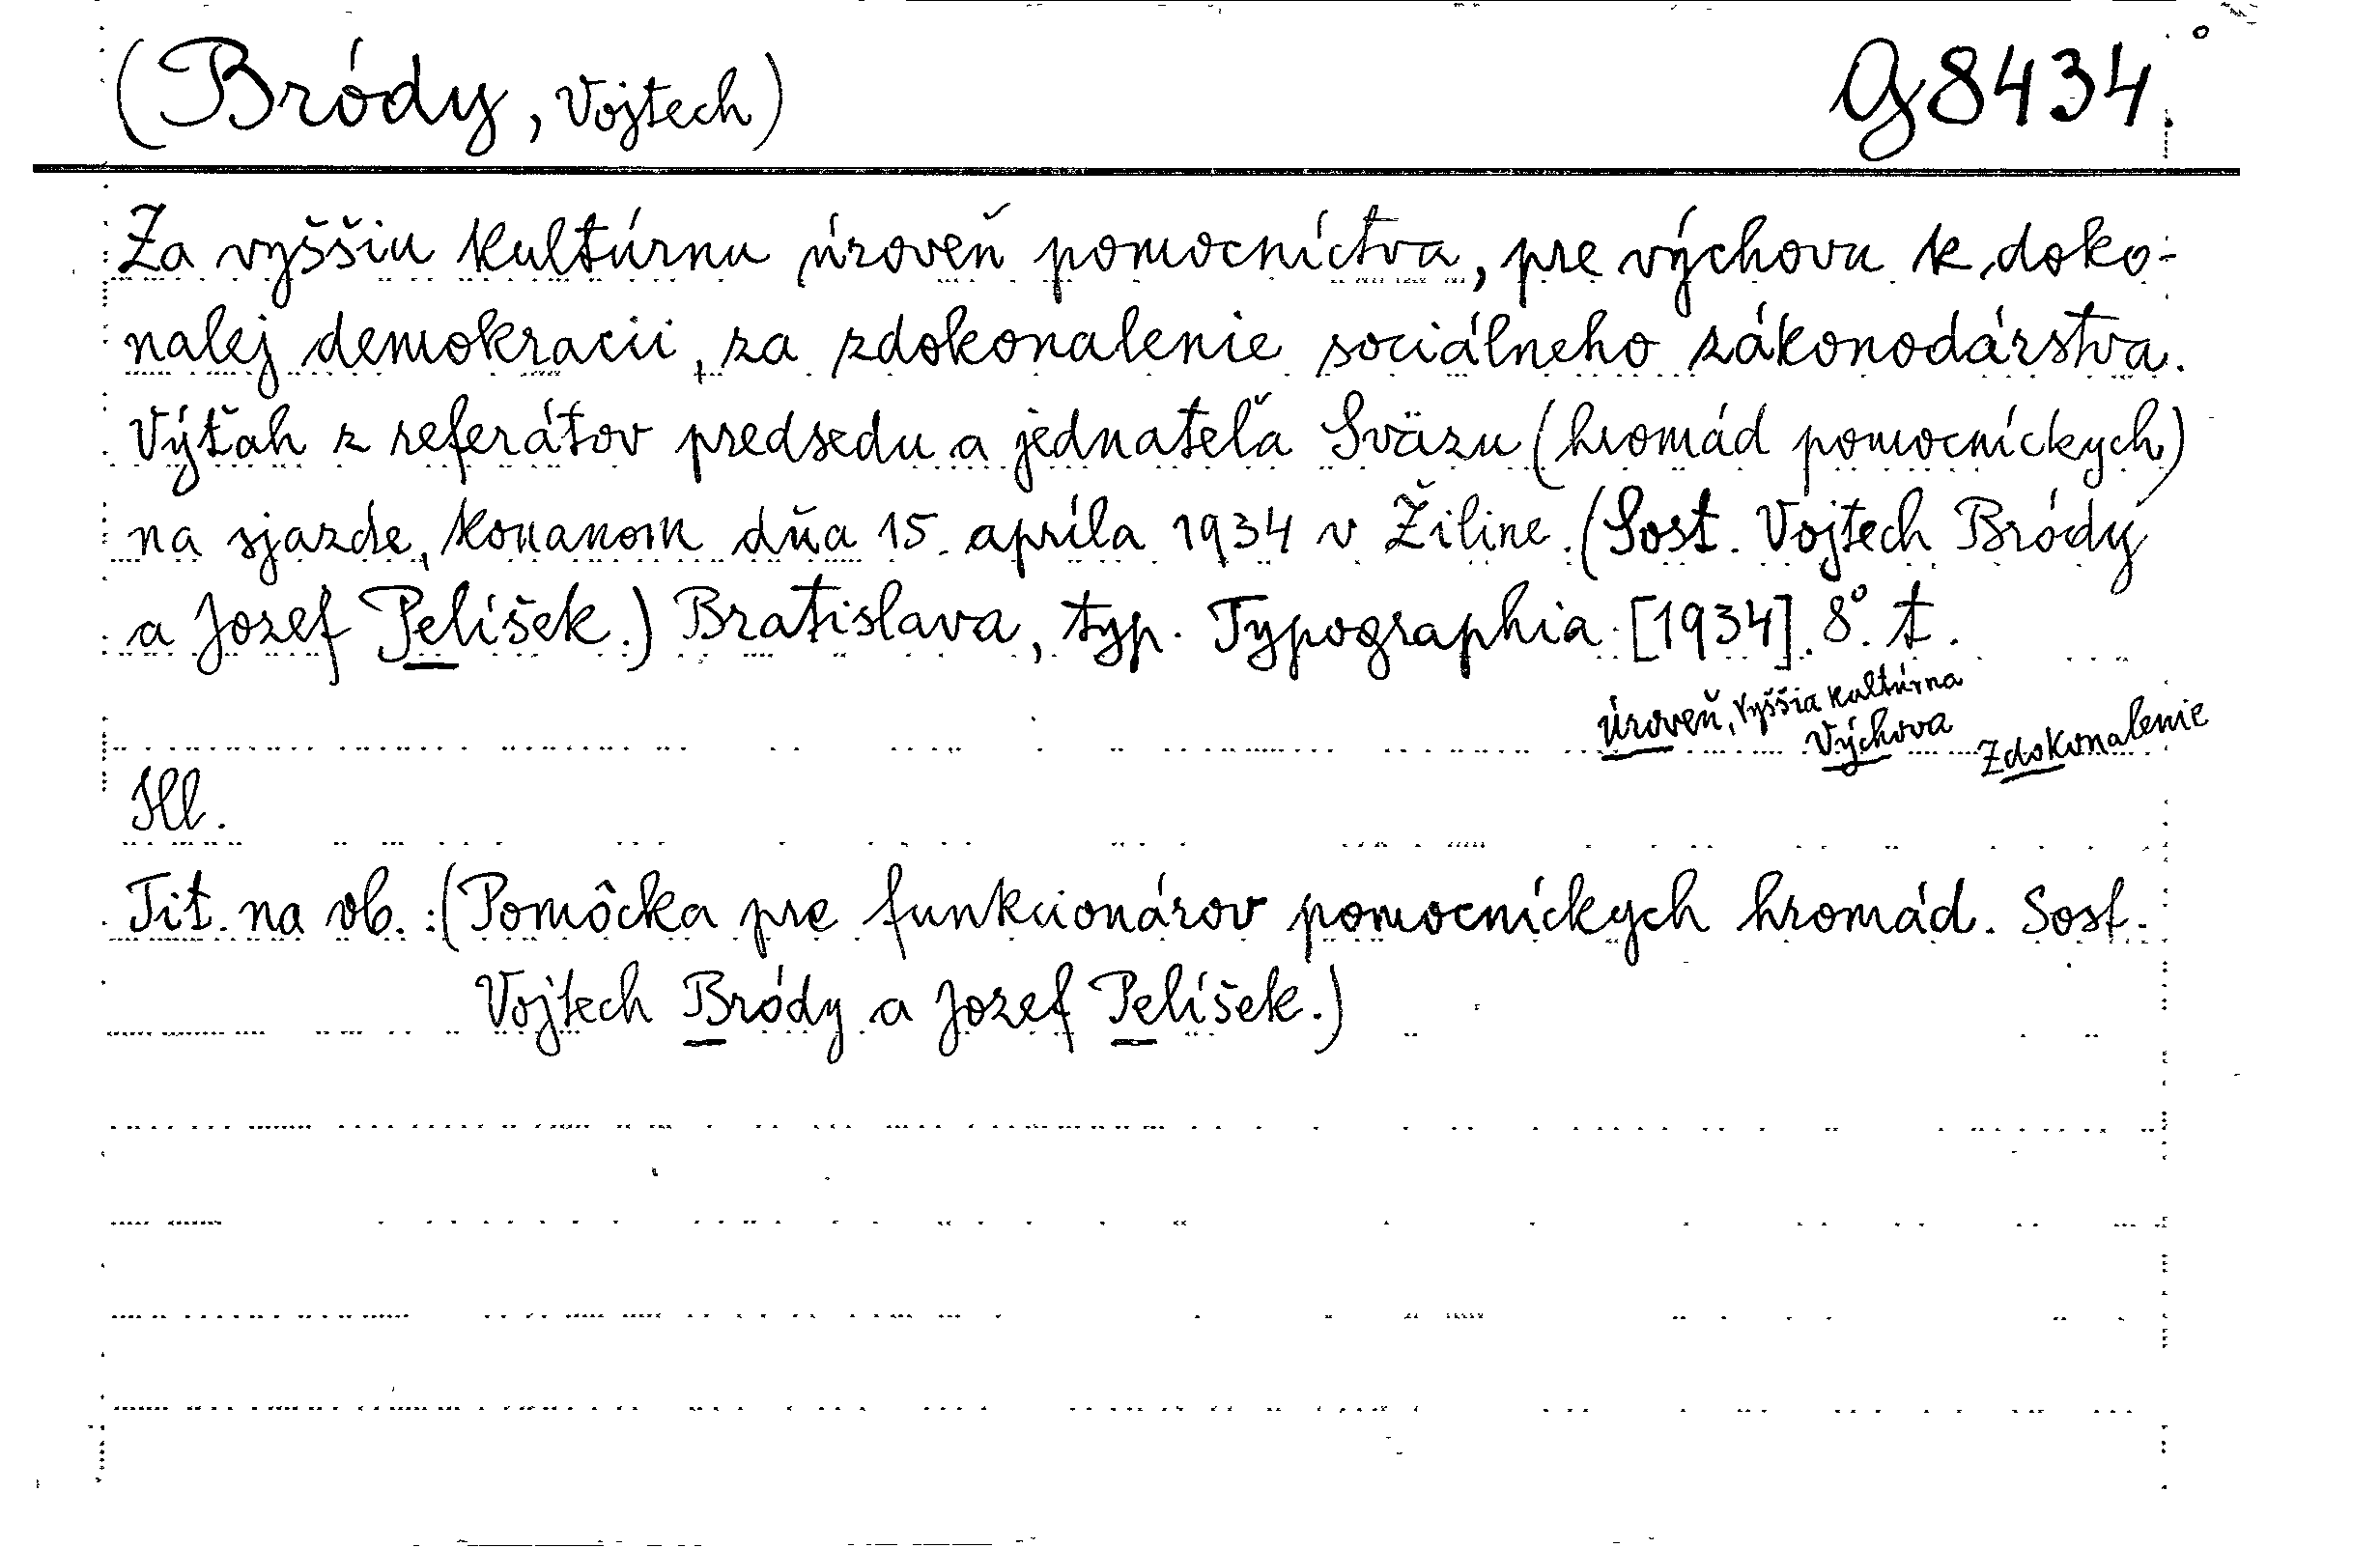 (Bródy, Vojtech) G 8434
Za vyššiu kultúrnu úroveň pomocníctva, pre výchovu k doko-
nalej demokracii, za zdokonalenie sociálneho zákonodárstva.
Výťah z referátov predsedu a jednateľa Sväzu (hromád pomocníckych)
na sjazde, konanom dňa 15. apríla 1934 v Žiline. (Sost. Vojtech Bródy
a Jozef Pelíšek.) Bratislava, typ. Typographia [1934]. 8°. t.
Úroveň, vyššia kultúrna
Výchova
Zdokonalenie
Ill.
Tit. na ob.: (Pomôcka pre funkcionárov pomocníckych hromád. Sost.
Vojtech Bródy a Jozef Pelíšek.)